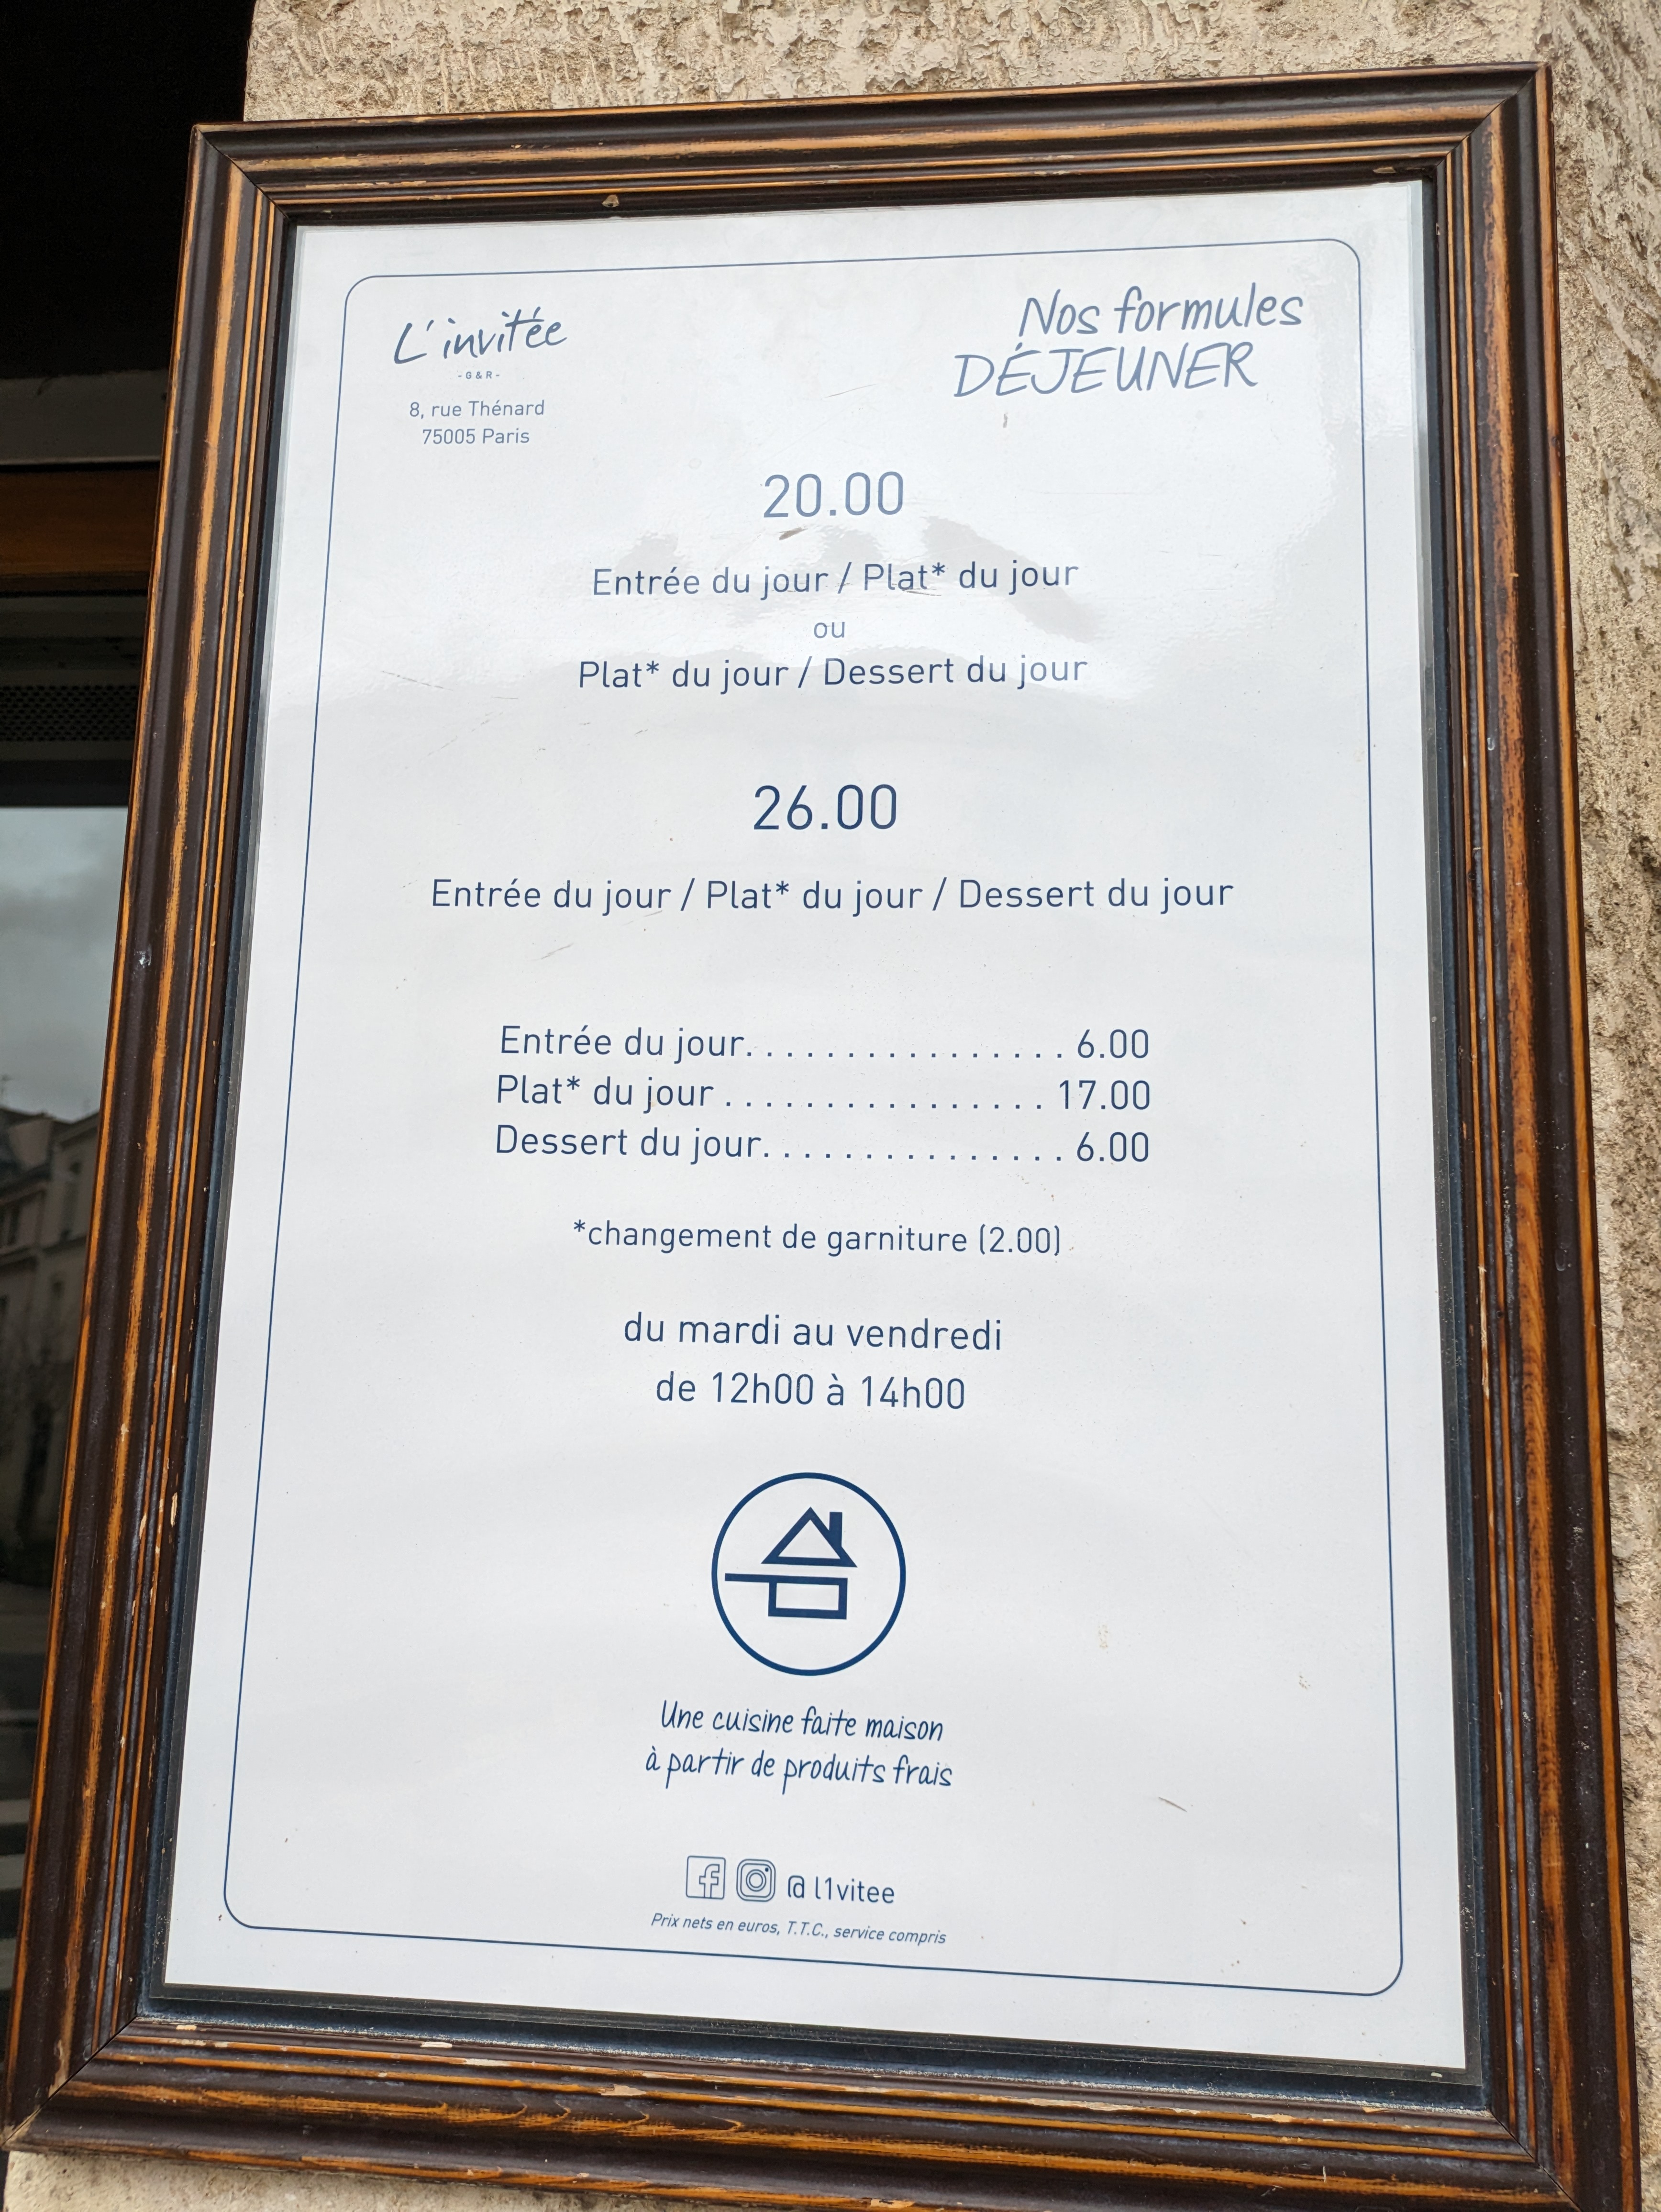 L'invitée
- G & R -
8, rue Thénard
75005 Paris
Nos formules
DÉJEUNER
20.00
Entrée du jour / Plat* du jour
ou
Plat* du jour / Dessert du jour
26.00
Entrée du jour / Plat* du jour / Dessert du jour
Entrée du jour................ 6.00
Plat* du jour ................ 17.00
Dessert du jour............... 6.00
*changement de garniture (2.00)
du mardi au vendredi
de 12h00 à 14h00
Une cuisine faite maison
à partir de produits frais
@ l1vitee
Prix nets en euros, T.T.C., service compris